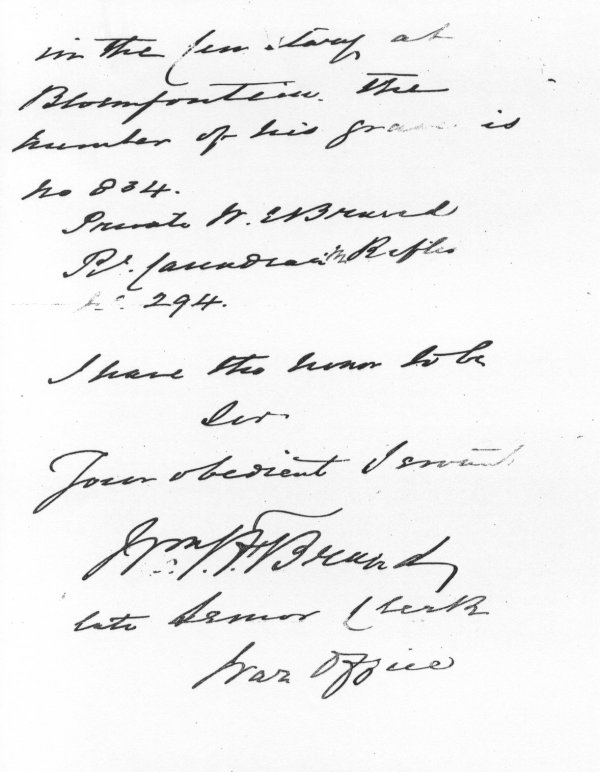 in the Cemetary at
Bloemfontein. The
number of his grave is
no 834.
Private W. E Brand
Rl. Canadian M Rifles
No. 294.
I have the honor to be
Sir
Your obedient Servant
Wm Brand
late Senior Clerk
War Office